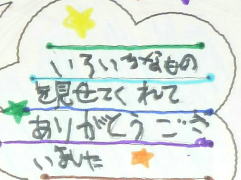 いろいろなもの
を見せてくれて
ありがとうござ
いました